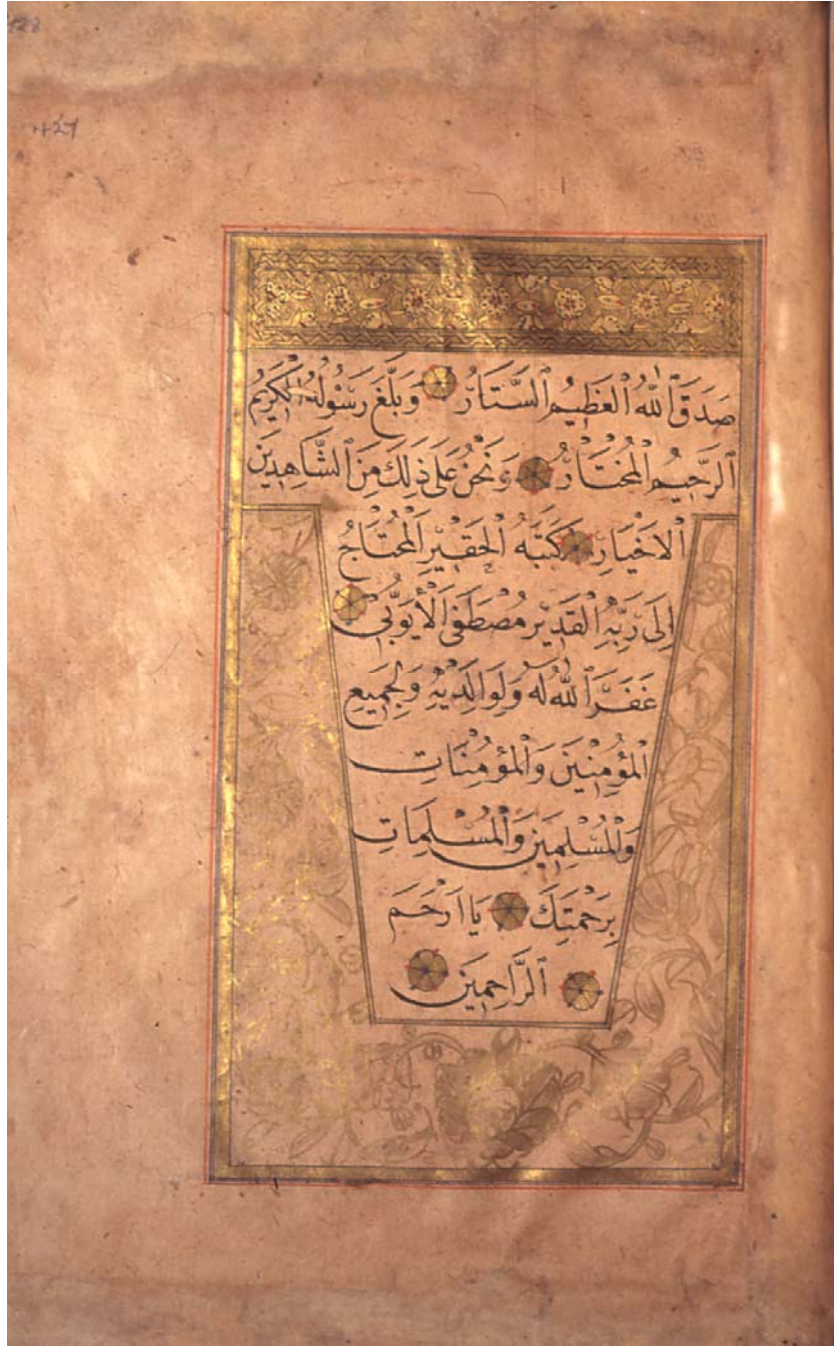 427
صَدَقَ ٱللّٰهُ ٱلْعَظِيمُ ٱلسَّتَّارُ وَبَلَّغَ رَسُولُهُ ٱلْكَرِيمُ
ٱلرَّحِيمُ ٱلْمُخْتَارُ وَنَحْنُ عَلَى ذَلِكَ مِنَ ٱلشَّاهِدِينَ
ٱلْاَخْيَارِ كَتَبَهُ ٱلْحَقِيْرِ ٱلْمُحْتَاجُ
اِلَى رَبِّهِ ٱلْقَدِيْرِ مُصْطَفَى ٱلْاَيُّوبِى
غَفَرَ ٱللّٰهُ لَهُ وَلِوَالِدَيْهِ وَلِجَمِيعِ
ٱلْمُؤْمِنِيْنَ وَٱلْمُؤْمِنَاتِ
وَٱلْمُسْلِمِينَ وَٱلْمُسْلِمَاتِ
بِرَحْمَتِكَ يَا اَرْحَمَ
ٱلرَّاحِمِينَ